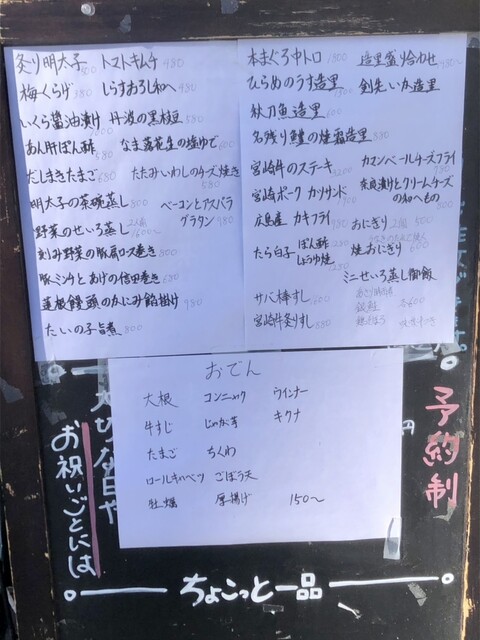 炙り明太子 800
トマトキムチ 480
梅くらげ 380
しらすおろし和へ 480
いくら醤油漬け
丹波の黒枝豆 580
あん肝ぽん酢
なま落花生の塩ゆで 600
だしまきたまご 680
たたみいわしのチーズ焼き 580
明太子の茶碗蒸し
ベーコンとアスパラ
グラタン 980
野菜のせいろ蒸し 1600〜
刻み野菜の豚肩ロース巻き 800
豚ミンチとあげの信田巻き 680
蓮根饅頭のかにみ餡掛け 980
たいの子旨煮 800
本まぐろ中トロ 1800
造里盛り合わせ
ひらめのうす造里
剣先いか造里
秋刀魚造里
名残り鱧の焼霜造里
宮崎牛のステーキ
カマンベールチーズフライ
宮崎ポーク カツサンド
奈良漬けとクリームチーズ
の和へもの 800
広島産 カキフライ 980
おにぎり 2個 500
たら白子
ぽん酢 1280
しょうゆ焼 1280
焼おにぎり 600
ミニせいろ蒸し御飯
サバ棒すし 1600
宮崎牛炙りすし
銀鮭
各600
おでん
大根
コンニャク
ウインナー
牛すじ
じゃが芋
キクナ
たまご
ちくわ
ロールキャベツ
ごぼう天
牡蠣
厚揚げ
150〜
予約制
大切な日や
お祝いごとには
ちょこっと一品